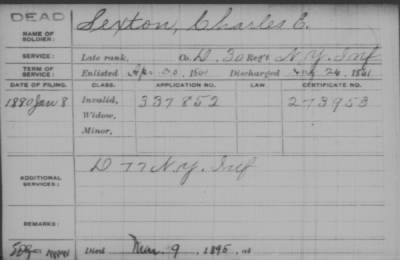 DEAD
NAME OF SOLDIER: Sexton, Charles E.
SERVICE: Late rank, Co. D, 30 Reg't N.Y. Inf
TERM OF SERVICE: Enlisted Apr. 30, 1861 Discharged 24, 1861
DATE OF FILING. CLASS. APPLICATION NO. LAW CERTIFICATE NO.
1880 Jan 8 Invalid, 337852 273953
Widow,
Minor,
ADDITIONAL SERVICES: D 77 N.Y. Inf
REMARKS:
Died Mar. 9, 1895, at